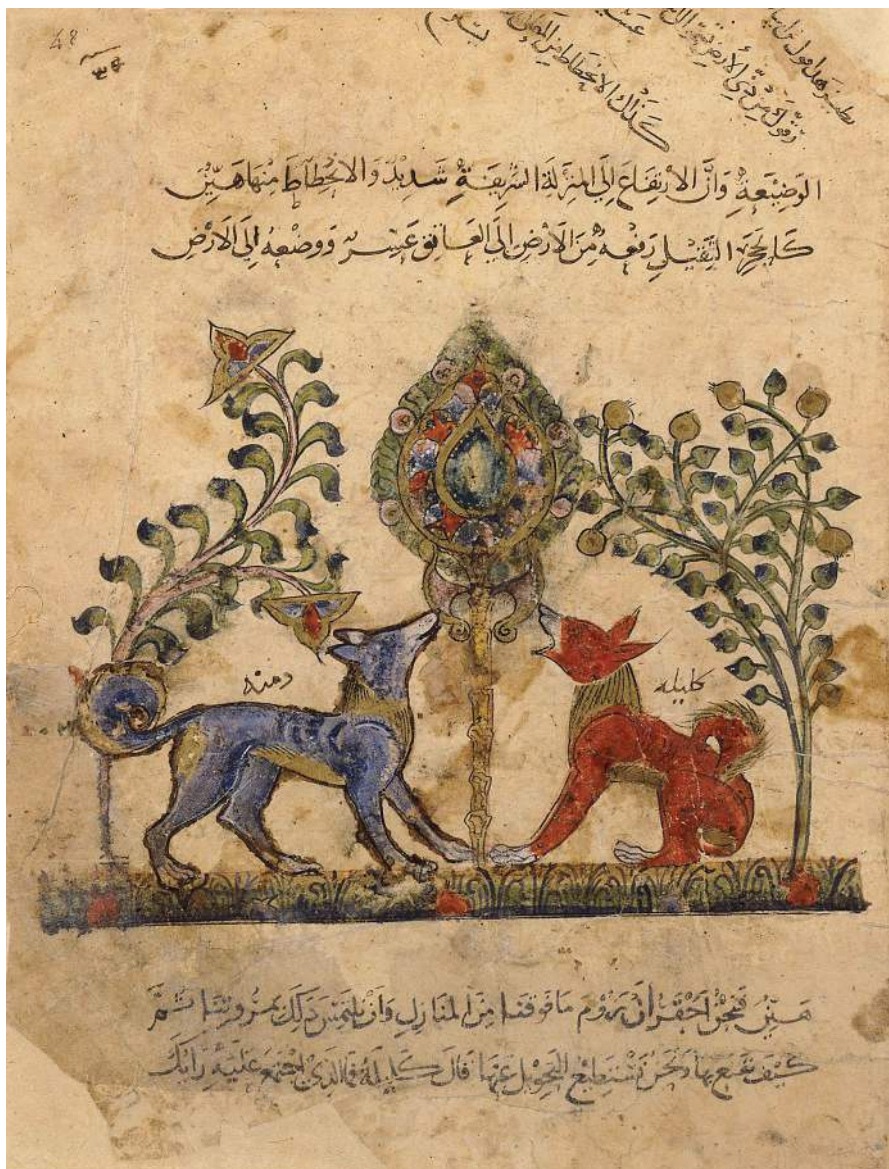 48
الوَضِيْعَةِ وَاَنَّ الارتِفَاعَ اِلَى المنزِلَةِ الشَّرِيفَةِ شَدِيْدٌ وَالانحِطَاطَ مِنْهَا هَيِّنٌ
كَالحَجَرِ الثَّقِيْلِ رَفْعُهُ مِنَ الاَرْضِ اِلَى العَاتِقِ عَسِرٌ وَوَضْعُهُ اِلَى الاَرْضِ
دمنه
كليله
هَيِّنٌ فَنَحْنُ اَحَقُّ اَنْ نَرُوْمَ مَا فَوْقَنَا مِنَ المنَازِلِ وَاَنْ نَلْتَمِسَ ذَلِكَ بمرُوتِنَا ثُمَّ
كَيْفَ نَقْنَعُ بِهَا وَنَحْنُ نَسْتَطِيْعُ التَّحْوِيْلَ عَنْهَا قَالَ كَلِيْلَةُ فَمَا الَّذِي اجْتَمَعَ عَلَيْهِ رَايُكَ